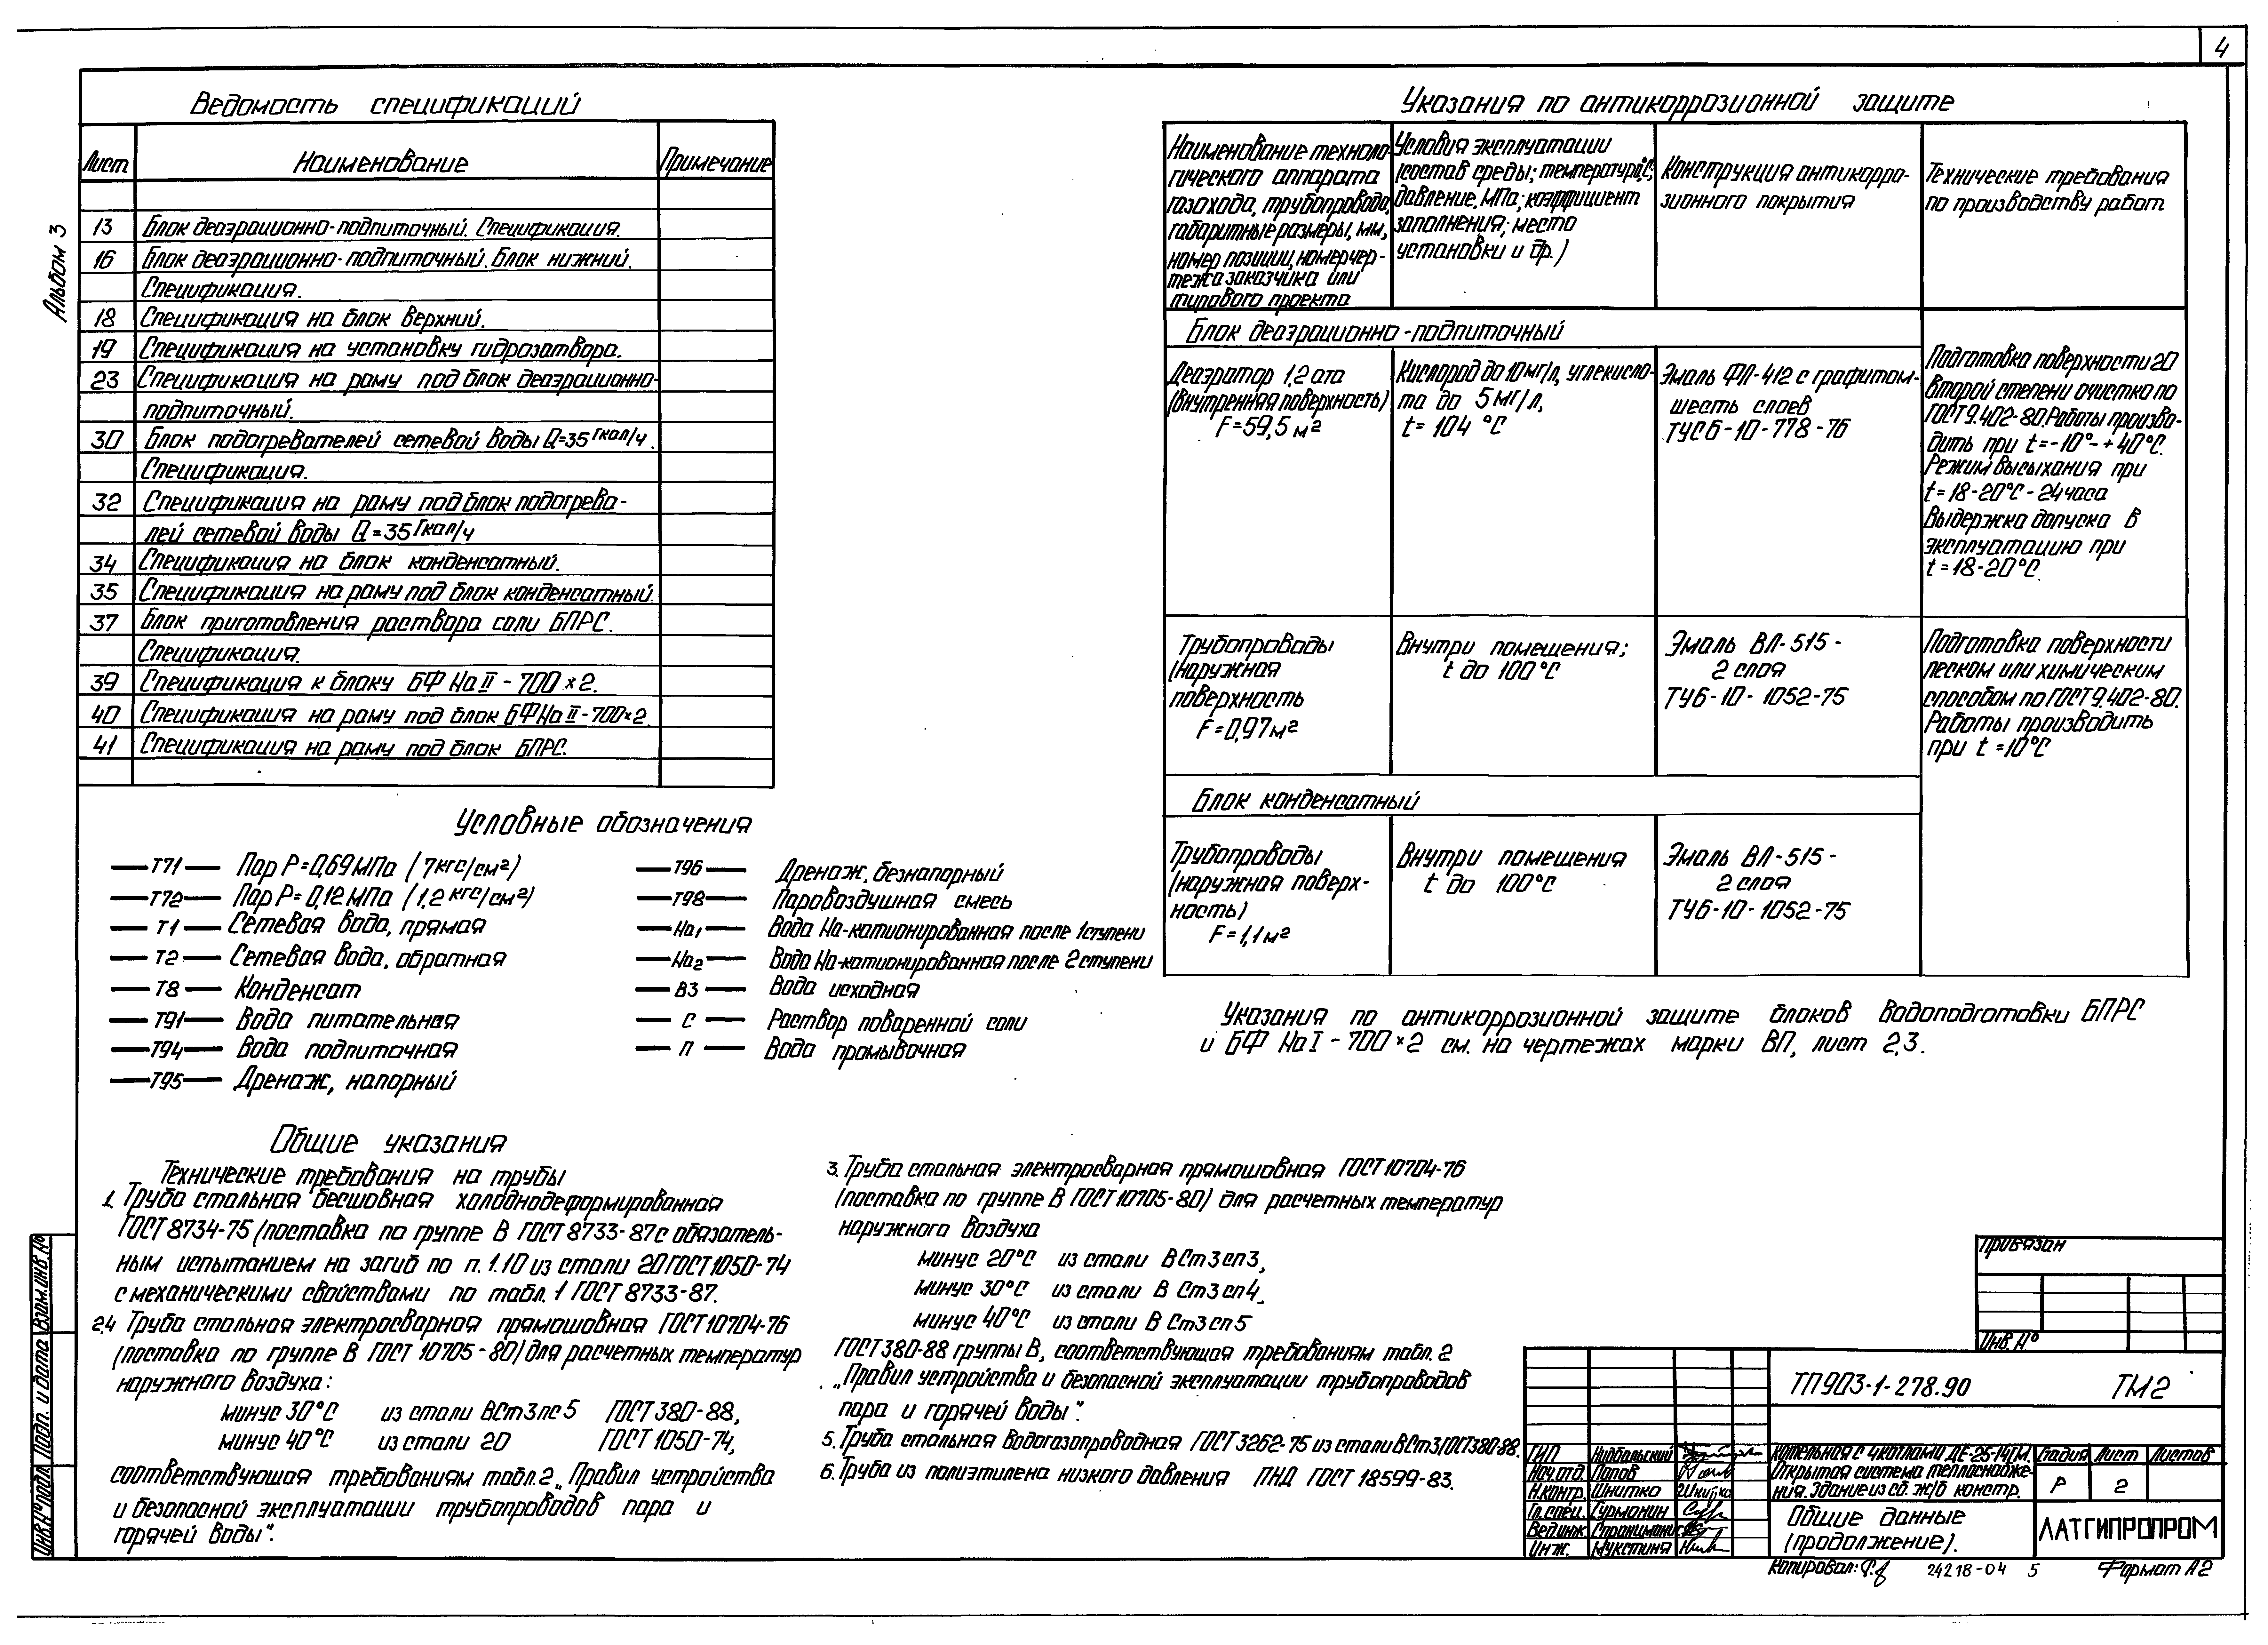 4
Альбом 3
Ведомость спецификаций
Лист Наименование Примечание
13 Блок деаэрационно-подпиточный. Спецификация.
16 Блок деаэрационно-подпиточный. Блок нижний.
Спецификация.
18 Спецификация на блок верхний.
19 Спецификация на установку гидрозатвора.
23 Спецификация на раму под блок деаэрационно-
подпиточный.
30 Блок подогревателей сетевой воды Q=35 Гкал/ч.
Спецификация.
32 Спецификация на раму под блок подогрева-
лей сетевой воды Q=35 Гкал/ч
34 Спецификация на блок конденсатный.
35 Спецификация на раму под блок конденсатный.
37 Блок приготовления раствора соли БПРС.
Спецификация.
39 Спецификация к блоку БФ Na II - 700×2.
40 Спецификация на раму под блок БФNa II-700×2.
41 Спецификация на раму под блок БПРС.
Указания по антикоррозионной защите
Наименование техноло-
гического аппарата
газохода, трубопровода,
габаритные размеры, мм,
номер позиции, номер чер-
тежа заказчика или
типового проекта
Условия эксплуатации
(состав среды; температура,°С;
давление, МПа; коэффициент
заполнения; место
установки и др.)
Конструкция антикорро-
зионного покрытия
Технические требования
по производству работ
Блок деаэрационно-подпиточный
Деаэратор 1,2 ата
(внутренняя поверхность)
F=59,5 м²
Кислород до 10 мг/л, углекисло-
та до 5 мг/л,
t= 104 °С
Эмаль ФЛ-412 с графитом-
шесть слоев
ТУС6-10-778-76
Подготовка поверхности 20
второй степени очистка по
ГОСТ 9.402-80. Работы произво-
дить при t=-10°-+40°С.
Режим высыхания при
t=18-20°С-24часа
Выдержка допуска в
эксплуатацию при
t=18-20°С.
Трубопроводы
(наружная
поверхность
F=0,97м²
Внутри помещения;
t до 100°С
Эмаль ВЛ-515-
2 слоя
ТУ6-10-1052-75
Подготовка поверхности
песком или химическим
способом по ГОСТ 9.402-80.
Работы производить
при t=10°С
Блок конденсатный
Трубопроводы
(наружная поверх-
ность)
F=1,1м²
Внутри помещения
t до 100°С
Эмаль ВЛ-515-
2 слоя
ТУ6-10-1052-75
Указания по антикоррозионной защите блоков водоподготовки БПРС
и БФ Na I-700×2 см. на чертежах марки ВП, лист 2,3.
Условные обозначения
Т71 Пар Р=0,69 МПа (7кгс/см²)
Т72 Пар Р=0,12 МПа (1,2 кгс/см²)
Т1 Сетевая вода, прямая
Т2 Сетевая вода, обратная
Т8 Конденсат
Т91 Вода питательная
Т94 Вода подпиточная
Т95 Дренаж, напорный
Т96 Дренаж, безнапорный
Т98 Паровоздушная смесь
Na1 Вода Na-катионированная после 1 ступени
Na2 Вода Na-катионированная после 2 ступени
В3 Вода исходная
С Раствор поваренной соли
П Вода промывочная
Общие указания
Технические требования на трубы
1. Труба стальная бесшовная холоднодеформированная
ГОСТ 8734-75 (поставка по группе В ГОСТ 8733-87 с обязатель-
ным испытанием на загиб по п. 1.10 из стали 20 ГОСТ 1050-74
с механическими свойствами по табл. 1 ГОСТ 8733-87.
2,4 Труба стальная электросварная прямошовная ГОСТ 10704-76
(поставка по группе В ГОСТ 10705-80) для расчетных температур
наружного воздуха:
минус 30°С из стали ВСт3пс5 ГОСТ 380-88,
минус 40°С из стали 20 ГОСТ 1050-74,
соответствующая требованиям табл.2 „Правил устройства
и безопасной эксплуатации трубопроводов пара и
горячей воды".
3. Труба стальная электросварная прямошовная ГОСТ 10704-76
(поставка по группе В ГОСТ 10705-80) для расчетных температур
наружного воздуха
минус 20°С из стали В Ст3сп3,
минус 30°С из стали В Ст3сп4,
минус 40°С из стали В Ст3сп5
ГОСТ 380-88 группы В, соответствующая требованиям табл. 2
„Правил устройства и безопасной эксплуатации трубопроводов
пара и горячей воды".
5. Труба стальная водогазопроводная ГОСТ 3262-75 из стали ВСт3 ГОСТ380-88.
6. Труба из полиэтилена низкого давления ПНД ГОСТ 18599-83.
Привязан
Инв. №
ТП903-1-278.90 ТМ2
ГИП Нидбальский
Нач.отд. Попов
Н.контр. Шнитко
Гл.спец. Гурмонин
Вед.инж.
Инж. Мукстиня
Котельная с 4 котлами ДЕ-25-14ГМ.
Открытая система теплоснабже-
ния. Здание из сб. ж/б констр.
Стадия Лист Листов
Р 2
Общие данные
(продолжение).
ЛАТГИПРОПРОМ
Копировал:
24218-04 5
Формат А2
Взам.инв.№
Подп. и дата
Инв.№подл.